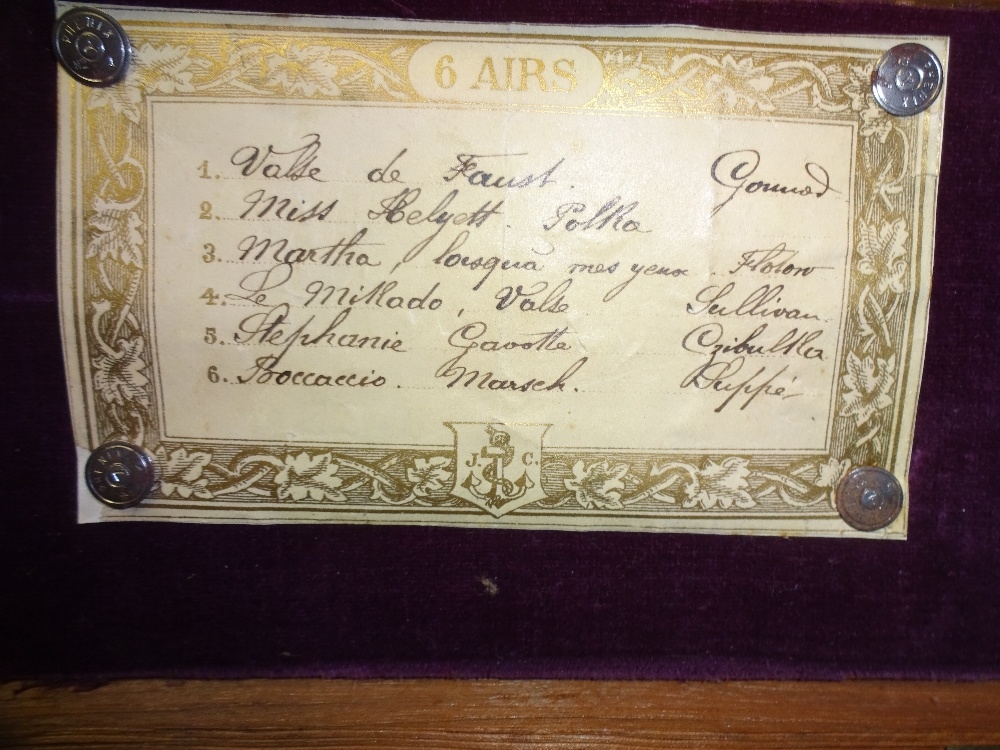 6 AIRS
1. Valse de Faust. Gounod
2. Miss Helyett. Polka
3. Martha, lorsqu'à mes yeux. Flotow
4. Le Mikado, Valse Sullivan.
5. Stephanie Gavotte Czibulka
6. Boccaccio. Marsch. Suppé
J. C.